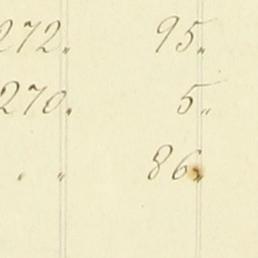 272. 95.
270. 5„
. „ 86„